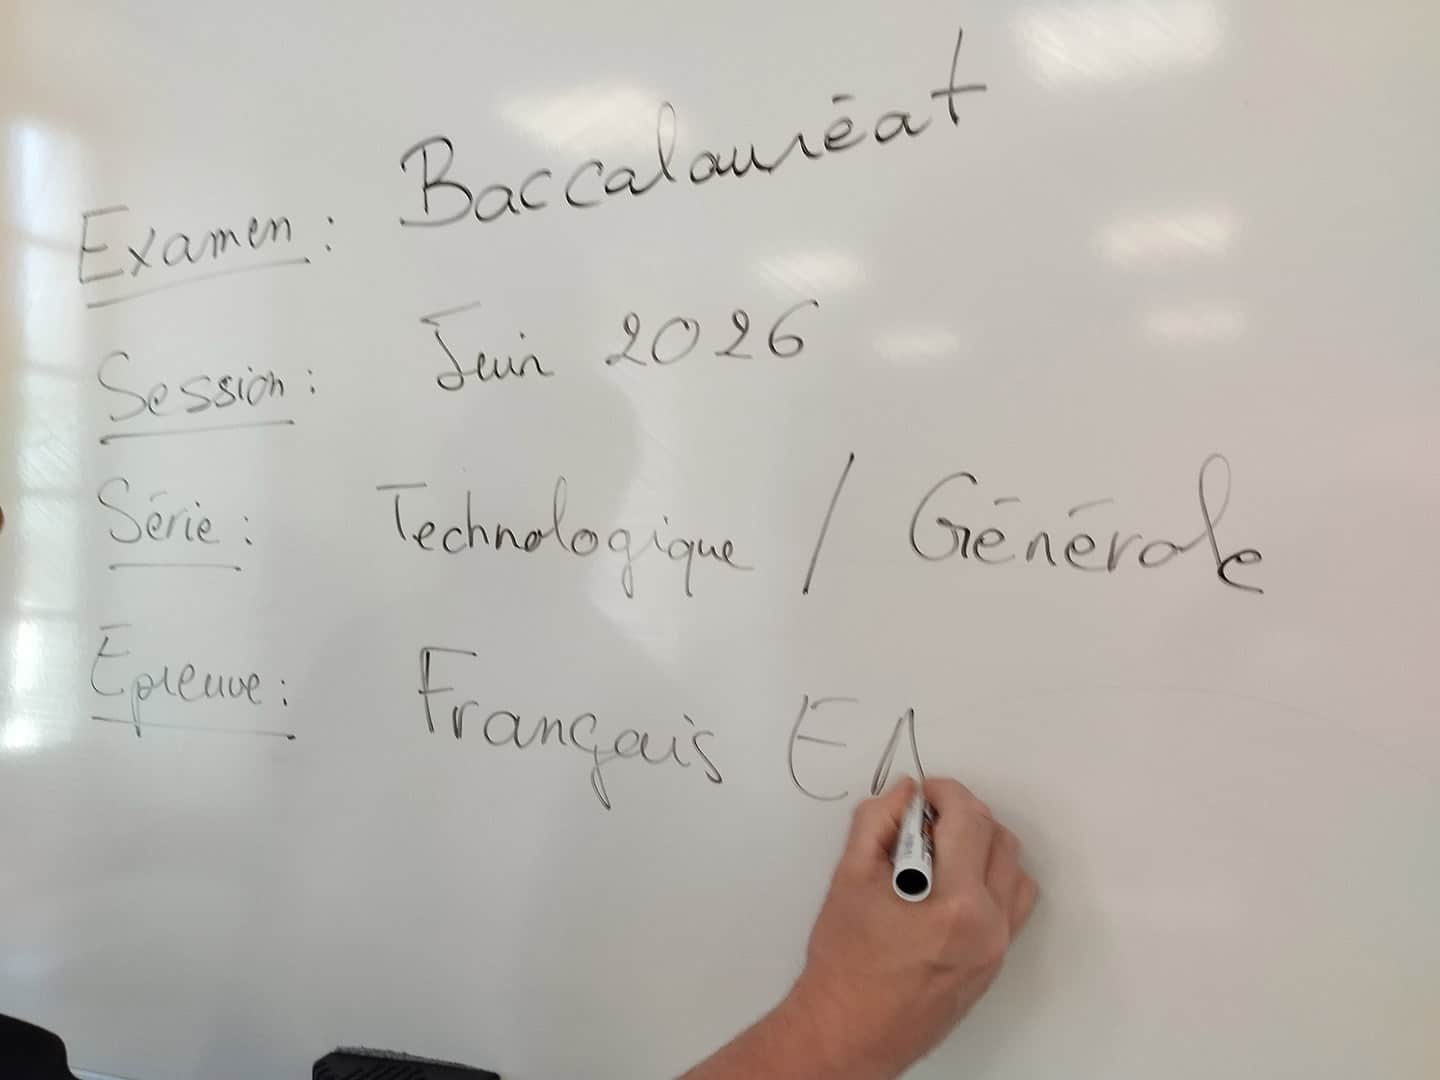 Examen : Baccalauréat
Session : Juin 2026
Série : Technologique / Générale
Epreuve : Français EA